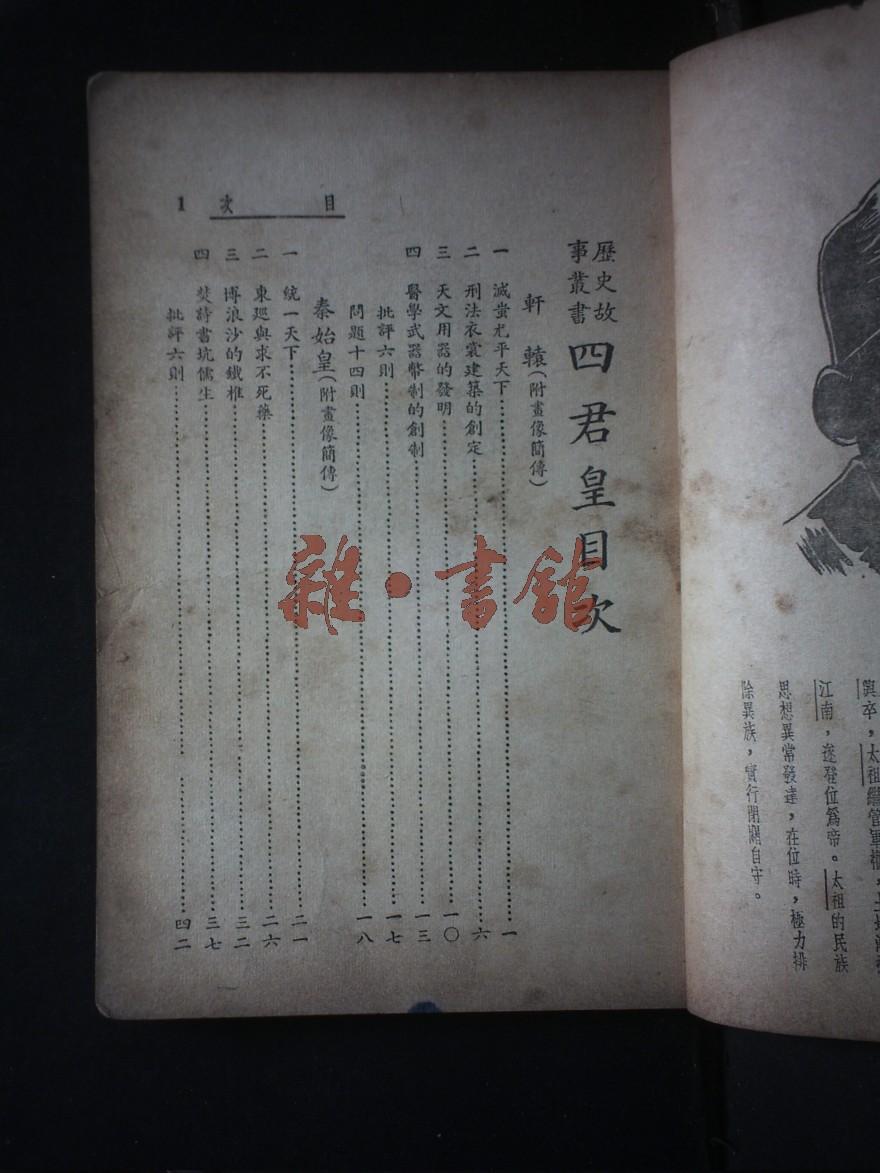 目次 1
歷史故事叢書 四君皇目次
軒轅（附畫像簡傳）
一 滅蚩尤平天下 一
二 刑法衣裳建築的創定 六
三 天文用器的發明 一〇
四 醫學武器幣制的創制 一三
批評六則 一七
問題十四則 一八
秦始皇（附畫像簡傳）
一 統一天下 二一
二 東廵與求不死藥 二六
三 博浪沙的鐵椎 三二
四 焚詩書坑儒生 三七
批評六則 四二
雜·書館
興卒，太祖繼管軍權，
江南，遂登位爲帝。太祖的民族
思想異常發達，在位時，極力排
除異族，實行閉關自守。